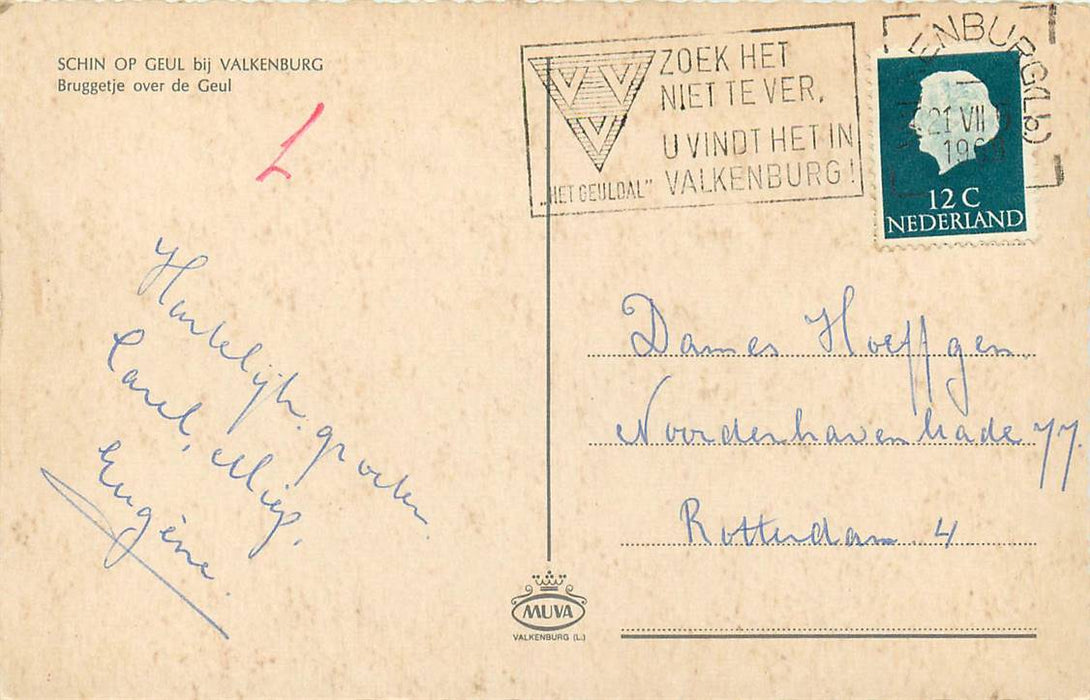 SCHIN OP GEUL bij VALKENBURG
Bruggetje over de Geul
ZOEK HET
NIET TE VER,
U VINDT HET IN
VALKENBURG!
„HET GEULDAL"
VVV
21 VII
12 C
NEDERLAND
Hartelijke groeten.
Carel, Miep,
Eugène.
Dames Hoeffgen.
Noorderhavenkade 77.
Rotterdam 4
MUVA
VALKENBURG (L.)